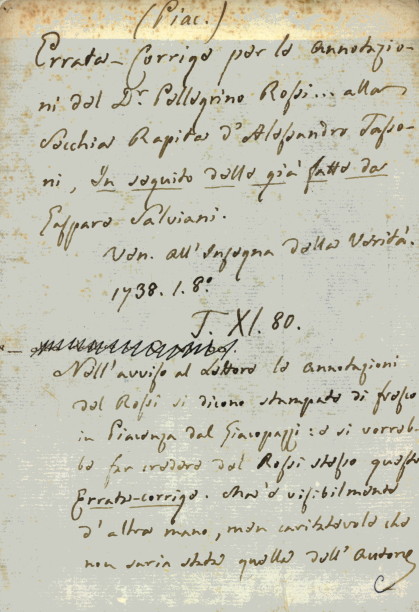 (Piac.)
Errata-Corrige per le annotazio-
ni del Dr. Pellegrino Rossi... alla
Secchia Rapita d'Alessandro Tasso-
ni, in seguito delle già fatte da
Gaspare Salviani.
Ven. all'Insegna della Verità.
1738. I. 8º
T. XI. 80.
Nell'avviso al Lettore le annotazioni
del Rossi si dicono stampate di fresco
in Piacenza dal Giacopazzi: e si vorreb-
be far credere del Rossi stesso questa
Errata-corrige. Ma è visibilmente
d'altra mano, men caritatevole che
non saria stata quella dell'Autore